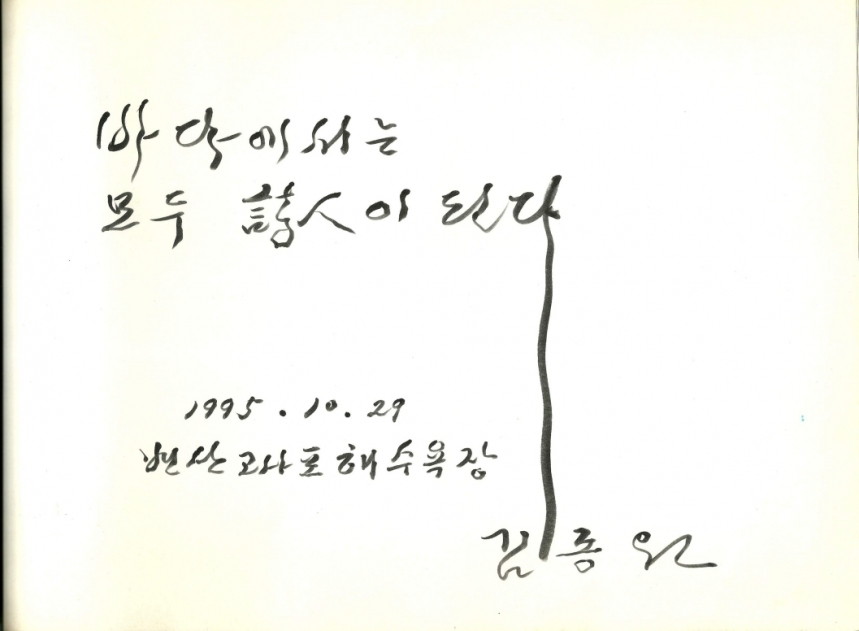 바닥에서는
모두 詩人이 된다
1995.10.29
변산고사포해수욕장
김동원